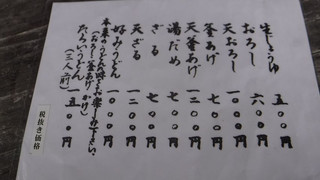 生じょうゆ 五〇〇円
おろし 六〇〇円
天おろし 一〇〇〇円
釜あげ 七〇〇円
天釜あげ 一二〇〇円
湯だめ 七〇〇円
ざる 七〇〇円
天ざる 一二〇〇円
好みうどん 一〇〇〇円
本来のうどん お楽しみ下さい。
(おろし・釜あげ・かけ)
たらいうどん(三人前) 一五〇〇円
税抜き価格